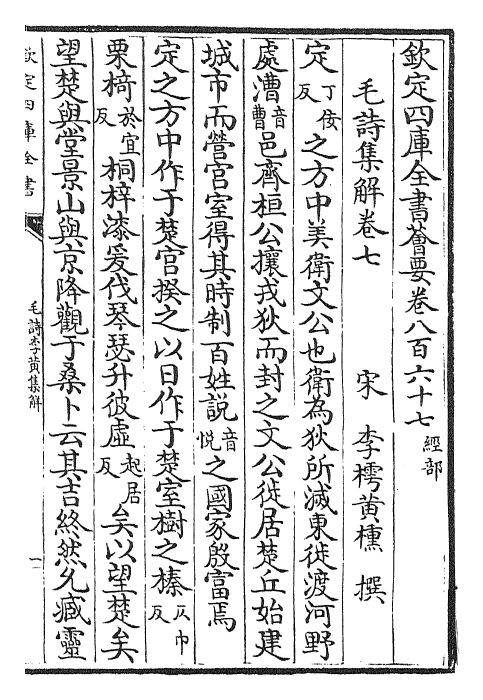 欽定四庫全書薈要卷八百六十七 經部
毛詩集解卷七
宋 李樗黃櫄 撰
定丁佞反之方中美衛文公也衛為狄所滅東徙渡河野
處漕音曹邑齊桓公攘戎狄而封之文公徙居楚丘始建
城市而營宮室得其時制百姓說音悅之國家殷富焉
定之方中作于楚宮揆之以日作于楚室樹之榛仄巾反
栗椅於宜反桐梓漆爰伐琴瑟升彼虛起居反矣以望楚矣
望楚與堂景山與京降觀于桑卜云其吉終然允臧靈
欽定四庫全書
毛詩李黃集解
一